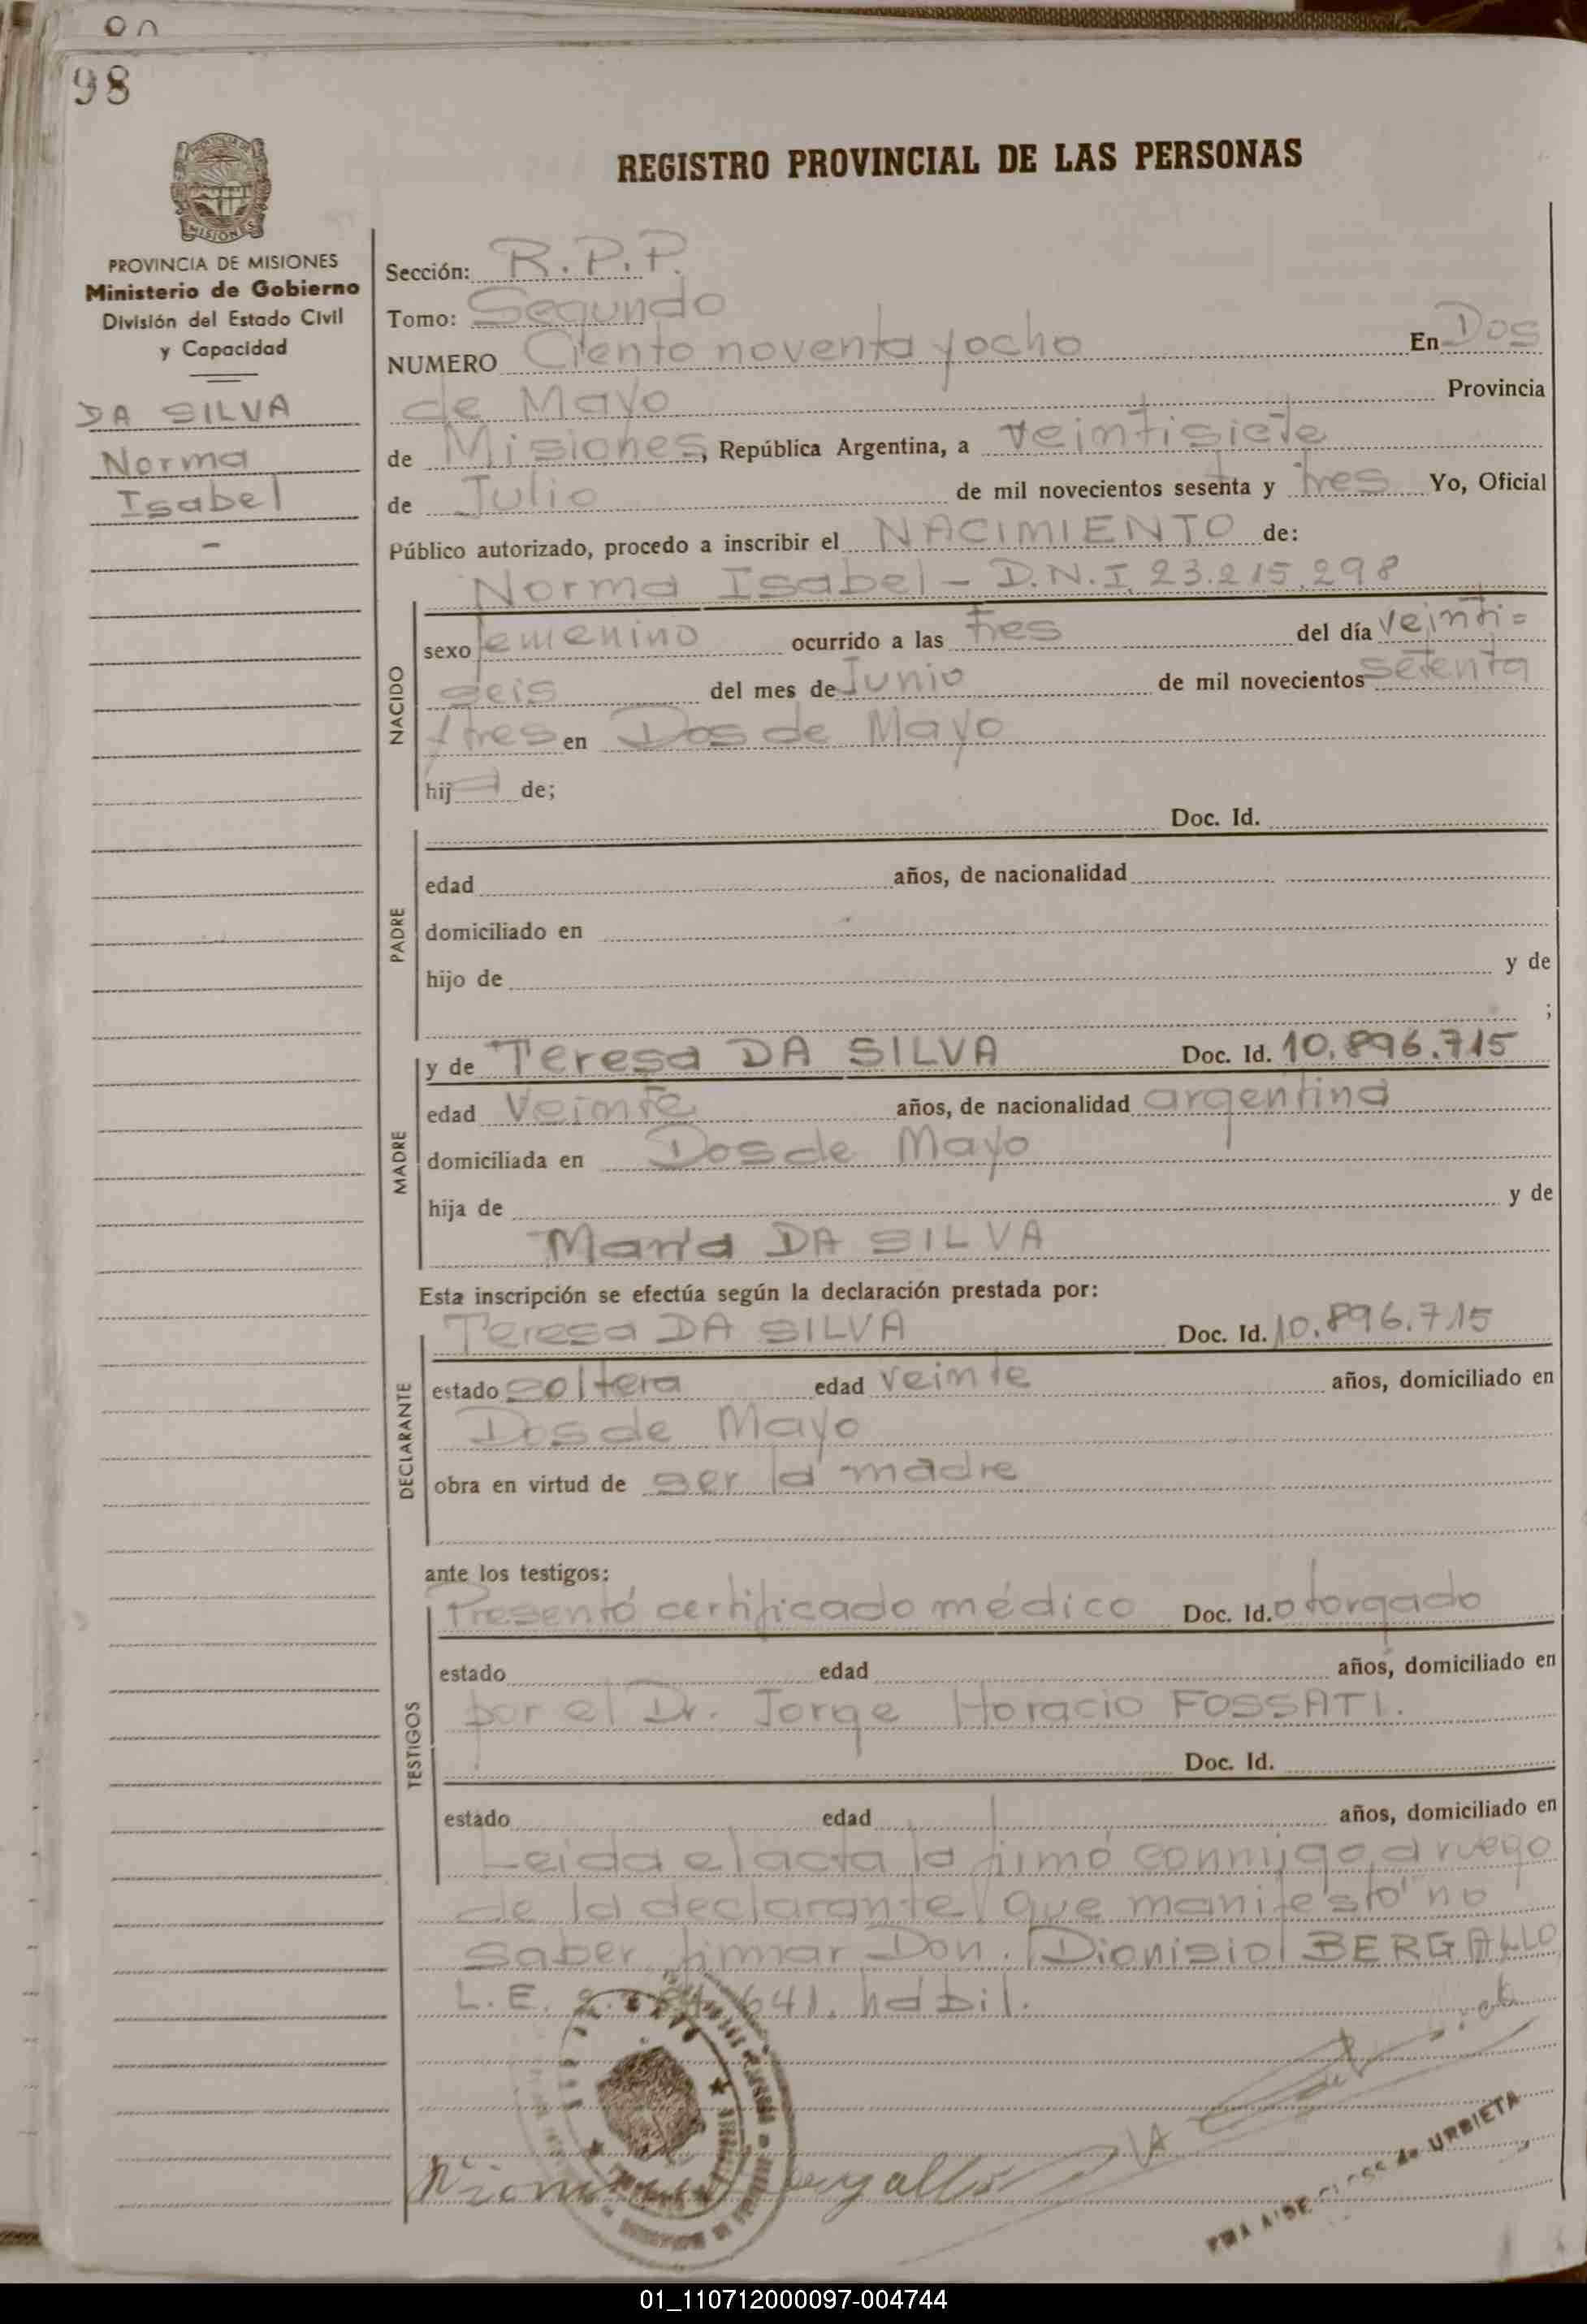 98
REGISTRO PROVINCIAL DE LAS PERSONAS
PROVINCIA DE
MISIONES
PROVINCIA DE MISIONES
Ministerio de Gobierno
División del Estado Civil
y Capacidad
DA SILVA
Norma
Isabel
-
Sección: R.P.P.
Tomo: Segundo
NUMERO Ciento noventa y ocho En Dos
de Mayo Provincia
de Misiones, República Argentina, a veintisiete
de Julio de mil novecientos sesenta y tres Yo, Oficial
Público autorizado, procedo a inscribir el NACIMIENTO de:
Norma Isabel - D.N.I. 23.215.298
NACIDO
sexo femenino ocurrido a las tres del día veinti=
seis del mes de Junio de mil novecientos setenta
y tres en Dos de Mayo
hija de;
Doc. Id.
PADRE
edad años, de nacionalidad
domiciliado en
hijo de y de
;
MADRE
y de Teresa DA SILVA Doc. Id. 10.896.715
edad Veinte años, de nacionalidad argentina
domiciliada en Dos de Mayo
hija de y de
María DA SILVA
Esta inscripción se efectúa según la declaración prestada por:
DECLARANTE
Teresa DA SILVA Doc. Id. 10.896.715
estado soltera edad veinte años, domiciliado en
Dos de Mayo
obra en virtud de ser la madre
ante los testigos:
TESTIGOS
Presentó certificado médico Doc. Id. otorgado
estado edad años, domiciliado en
por el Dr. Jorge Horacio FOSSATI.
Doc. Id.
estado edad años, domiciliado en
Leida el acta la firmó conmigo, a ruego
de la declarante que manifestó no
saber firmar Don. Dionisio BERGALLO
L.E. 641. hábil.
Bergallo
URBIETA
01_110712000097-004744